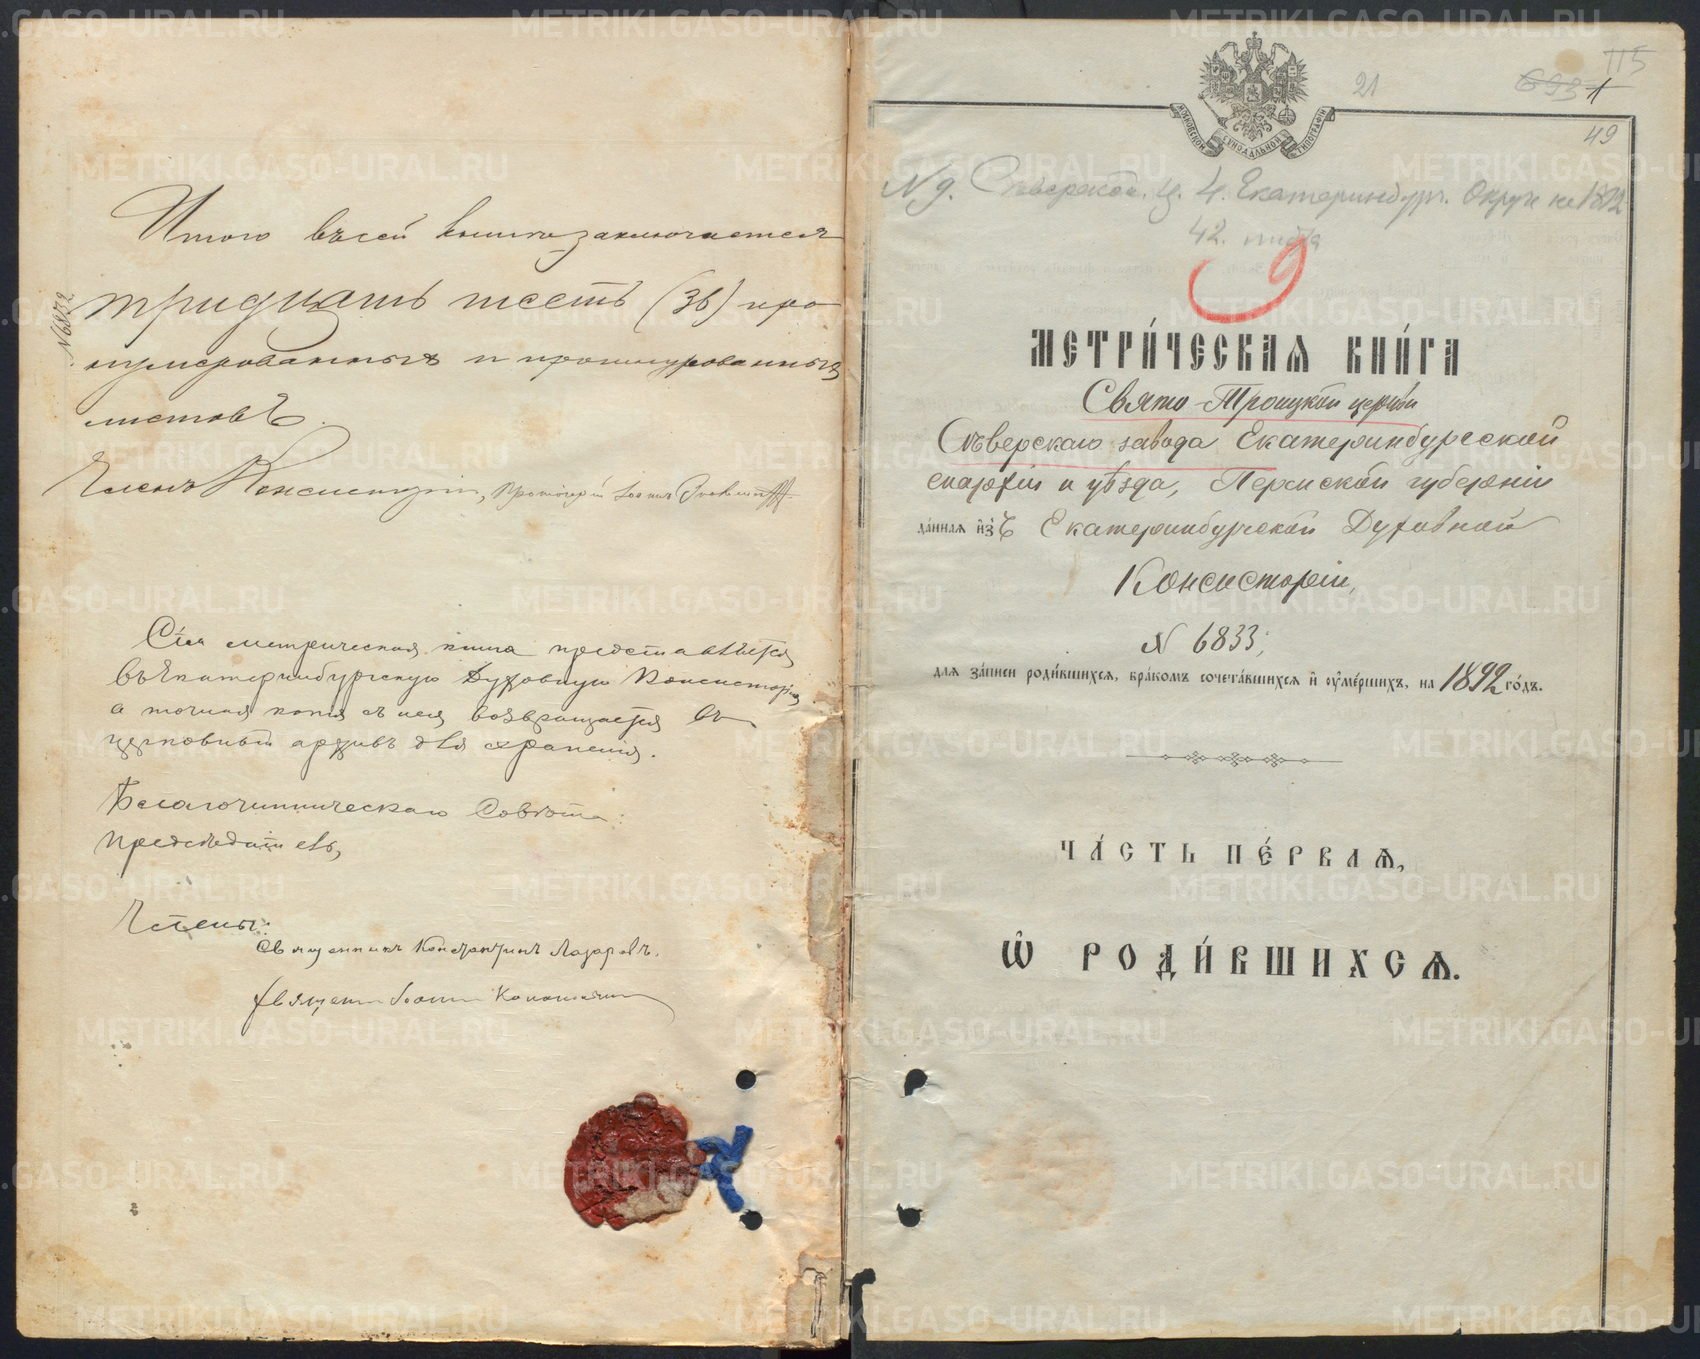 Итого въ сей книге заключается
тридцать шесть (36) про
нумерованныхъ и прошнурованныхъ
листовъ.
№ 6832
Членъ Консисторіи, Протоіерей Іоаннъ
Сія метрическая книга представляется
въ Екатеринбургскую Духовную Консисторію,
а точная копія съ нея возвращается въ
церковный архивъ для храненія.
Благочинническаго Совѣта:
Предсѣдатель,
Члены:
Священникъ Константинъ Лазаревъ.
Священникъ Іоаннъ
21
693 1
115
49
МОСКОВСКОЙ СѴНОДАЛЬНОЙ ТИПОГРАФІИ
№ 9. Сѣверской ц. 4. Екатеринбург. Округа на 1892
42. листа
9
МЕТРИ́ЧЕСКАѦ КНИ́ГА
Свято-Троицкой церкви
Сѣверскаго завода Екатеринбургской
епархіи и уѣзда, Пермской губерніи
да́ннаѧ и҆зъ Екатеринбургской Духовной
Консисторіи,
№ 6833;
длѧ за́писи роди́вшихсѧ, бра́комъ сочета́вшихсѧ и҆ ᲂу҆ме́ршихъ, на 1892 го́дъ.
ЧА́СТЬ ПЕ́РВАѦ,
Ѽ РОДИ́ВШИХСѦ.
METRIKI.GASO-URAL.RU